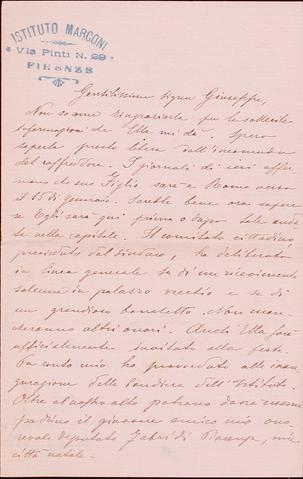 ISTITUTO MARCONI
Via Pinti N. 29
FIRENZE
Gentilissimo Signor Giuseppe,
Non so come ringraziarla per le sollecite
informazioni che Ella mi dà. Spero
saperla presto libera dall'incomodo
del raffreddore. I giornali di ieri affer
mano che suo Figlio sarà a Roma verso
il 15 di gennaio. Sarebbe bene ora sapere
se Egli sarà qui prima o dopo tale anda
ta nella capitale. Il comitato cittadino
presieduto dal sindaco, ha deliberato
in linea generale su di un ricevimento
solenne in palazzo vecchio e su di
un grandioso banchetto. Non man
cheranno altri onori. Anche Ella sarà
ufficialmente invitato alla festa.
Per conto mio, ho provveduto alla inau
gurazione della bandiera dell'Istituto.
Oltre al nostro alto patrono
padrino il giovane amico mio ono
revole deputato di mia
città natale.